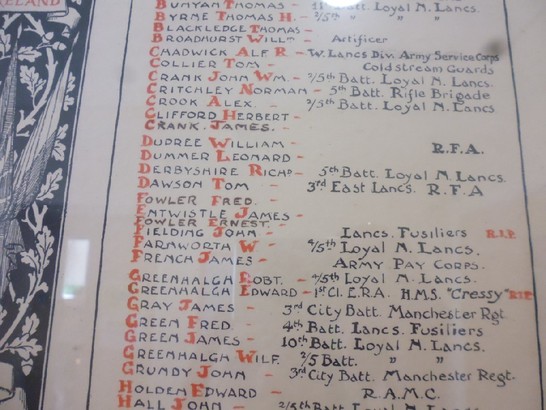 IRELAND
BUNYAN THOMAS - 11th Batt. Loyal N. Lancs.
BYRME THOMAS H. - 2/5th " " "
BLACKLEDGE THOMAS -
BROADHURST WILLM - Artificer
CHADWICK ALF R - W. Lancs Div. Army Service Corps
COLLIER TOM - Coldstream Guards
CRANK JOHN WM. - 2/5th Batt. Loyal N. Lancs.
CRITCHLEY NORMAN - 5th Batt. Rifle Brigade
CROOK ALEX. - 2/5th Batt. Loyal N. Lancs
CLIFFORD HERBERT -
CRANK. JAMES. -
DUDREE WILLIAM - R.F.A.
DUMMER LEONARD -
DERBYSHIRE RICHD - 5th Batt. Loyal N. Lancs.
DAWSON TOM - 3rd East Lancs. R.F.A
FOWLER FRED. -
ENTWISTLE JAMES -
FOWLER ERNEST. -
FIELDING JOHN - Lancs. Fusiliers R.I.P.
FARNWORTH W - 4/5th Loyal N. Lancs.
FRENCH JAMES - ARMY PAY CORPS.
GREENHALGH ROBT. - 4/5th Loyal N. Lancs.
GREENHALGH EDWARD - 1st Cl. E.R.A. H.M.S. "Cressy" R.I.P.
GRAY JAMES - 3rd City Batt. Manchester Rgt.
GREEN FRED. - 4th Batt. Lancs. Fusiliers
GREEN JAMES - 10th Batt. Loyal N. Lancs.
GREENHALGH WILF. 2/5 Batt. " "
GRUNDY JOHN - 3rd City Batt. Manchester Regt.
HOLDEN EDWARD - R.A.M.C.
HALL JOHN - 2/5th Batt. Loyal N. Lancs